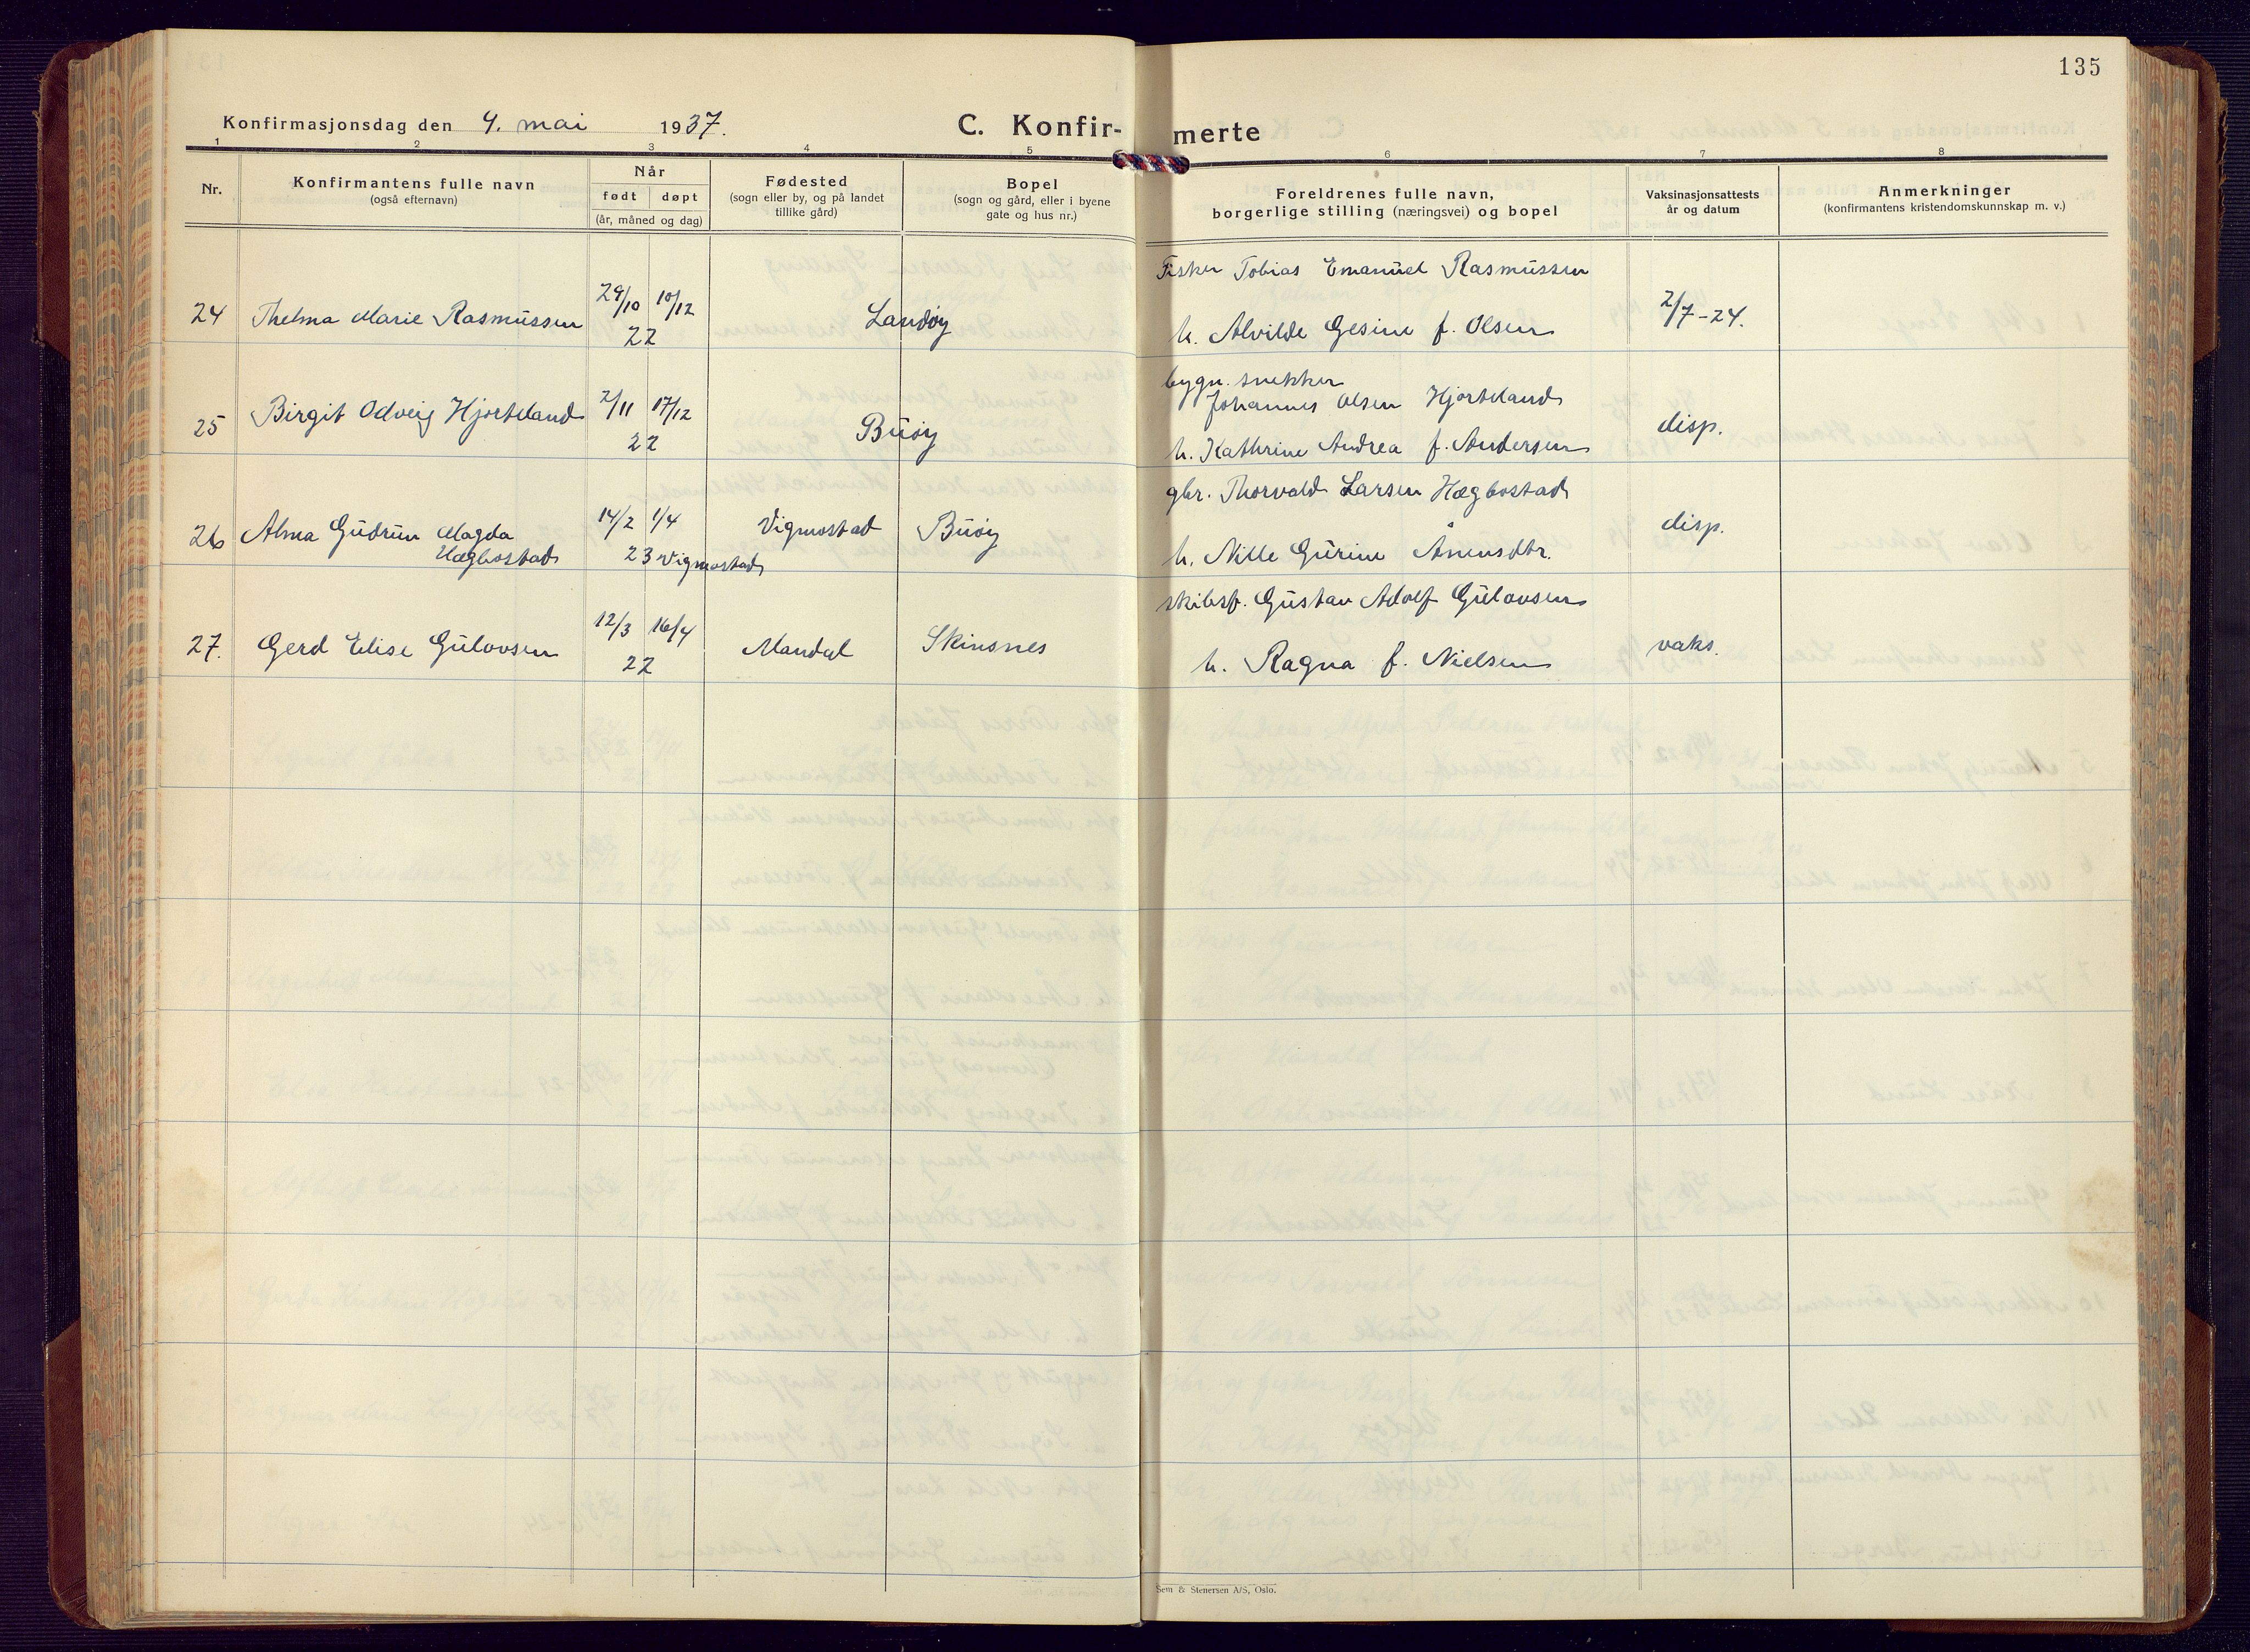 135
Konfirmasjonsdag den 9. mai 1937.
C. Konfir-merte
1 2 3 4 5 6 7 8
Nr.
Konfirmantens fulle navn
(også efternavn)
Når
født døpt
(år, måned og dag)
Fødested
(sogn eller by, og på landet
tillike gård)
Bopel
(sogn og gård, eller i byene
gate og hus nr.)
Foreldrenes fulle navn,
borgerlige stilling (næringsvei) og bopel
Vaksinasjonsattests
år og datum
Anmerkninger
(konfirmantens kristendomskunnskap m. v.)
Fisker Tobias Emanuel Rasmussen
24 Thelma Marie Rasmussen 29/10 10/12 Landøy 2/7-24.
22 h. Alvilde Gesine f. Olsen
bygn. snekker
25 Birgit Odveig Hjorteland 2/11 17/12 Johannes Olsen Hjorteland
22 Buøy disp.
h. Kathrine Andrea f. Andersen
gbr. Thorvald Larsen Hægbostad
26 Alma Gudrun Magda 14/2 1/4 Vigmostad Buøy disp.
Hægbostad 23 Vigmostad h. Nille Gurine Ånensdtr.
skibsf. Gustav Adolf Gulovsen
27. Gerd Elise Gulovsen 12/3 16/4 Mandal Skinsnes vaks.
22 h. Ragna f. Nielsen
Sem & Stenersen A/S, Oslo.